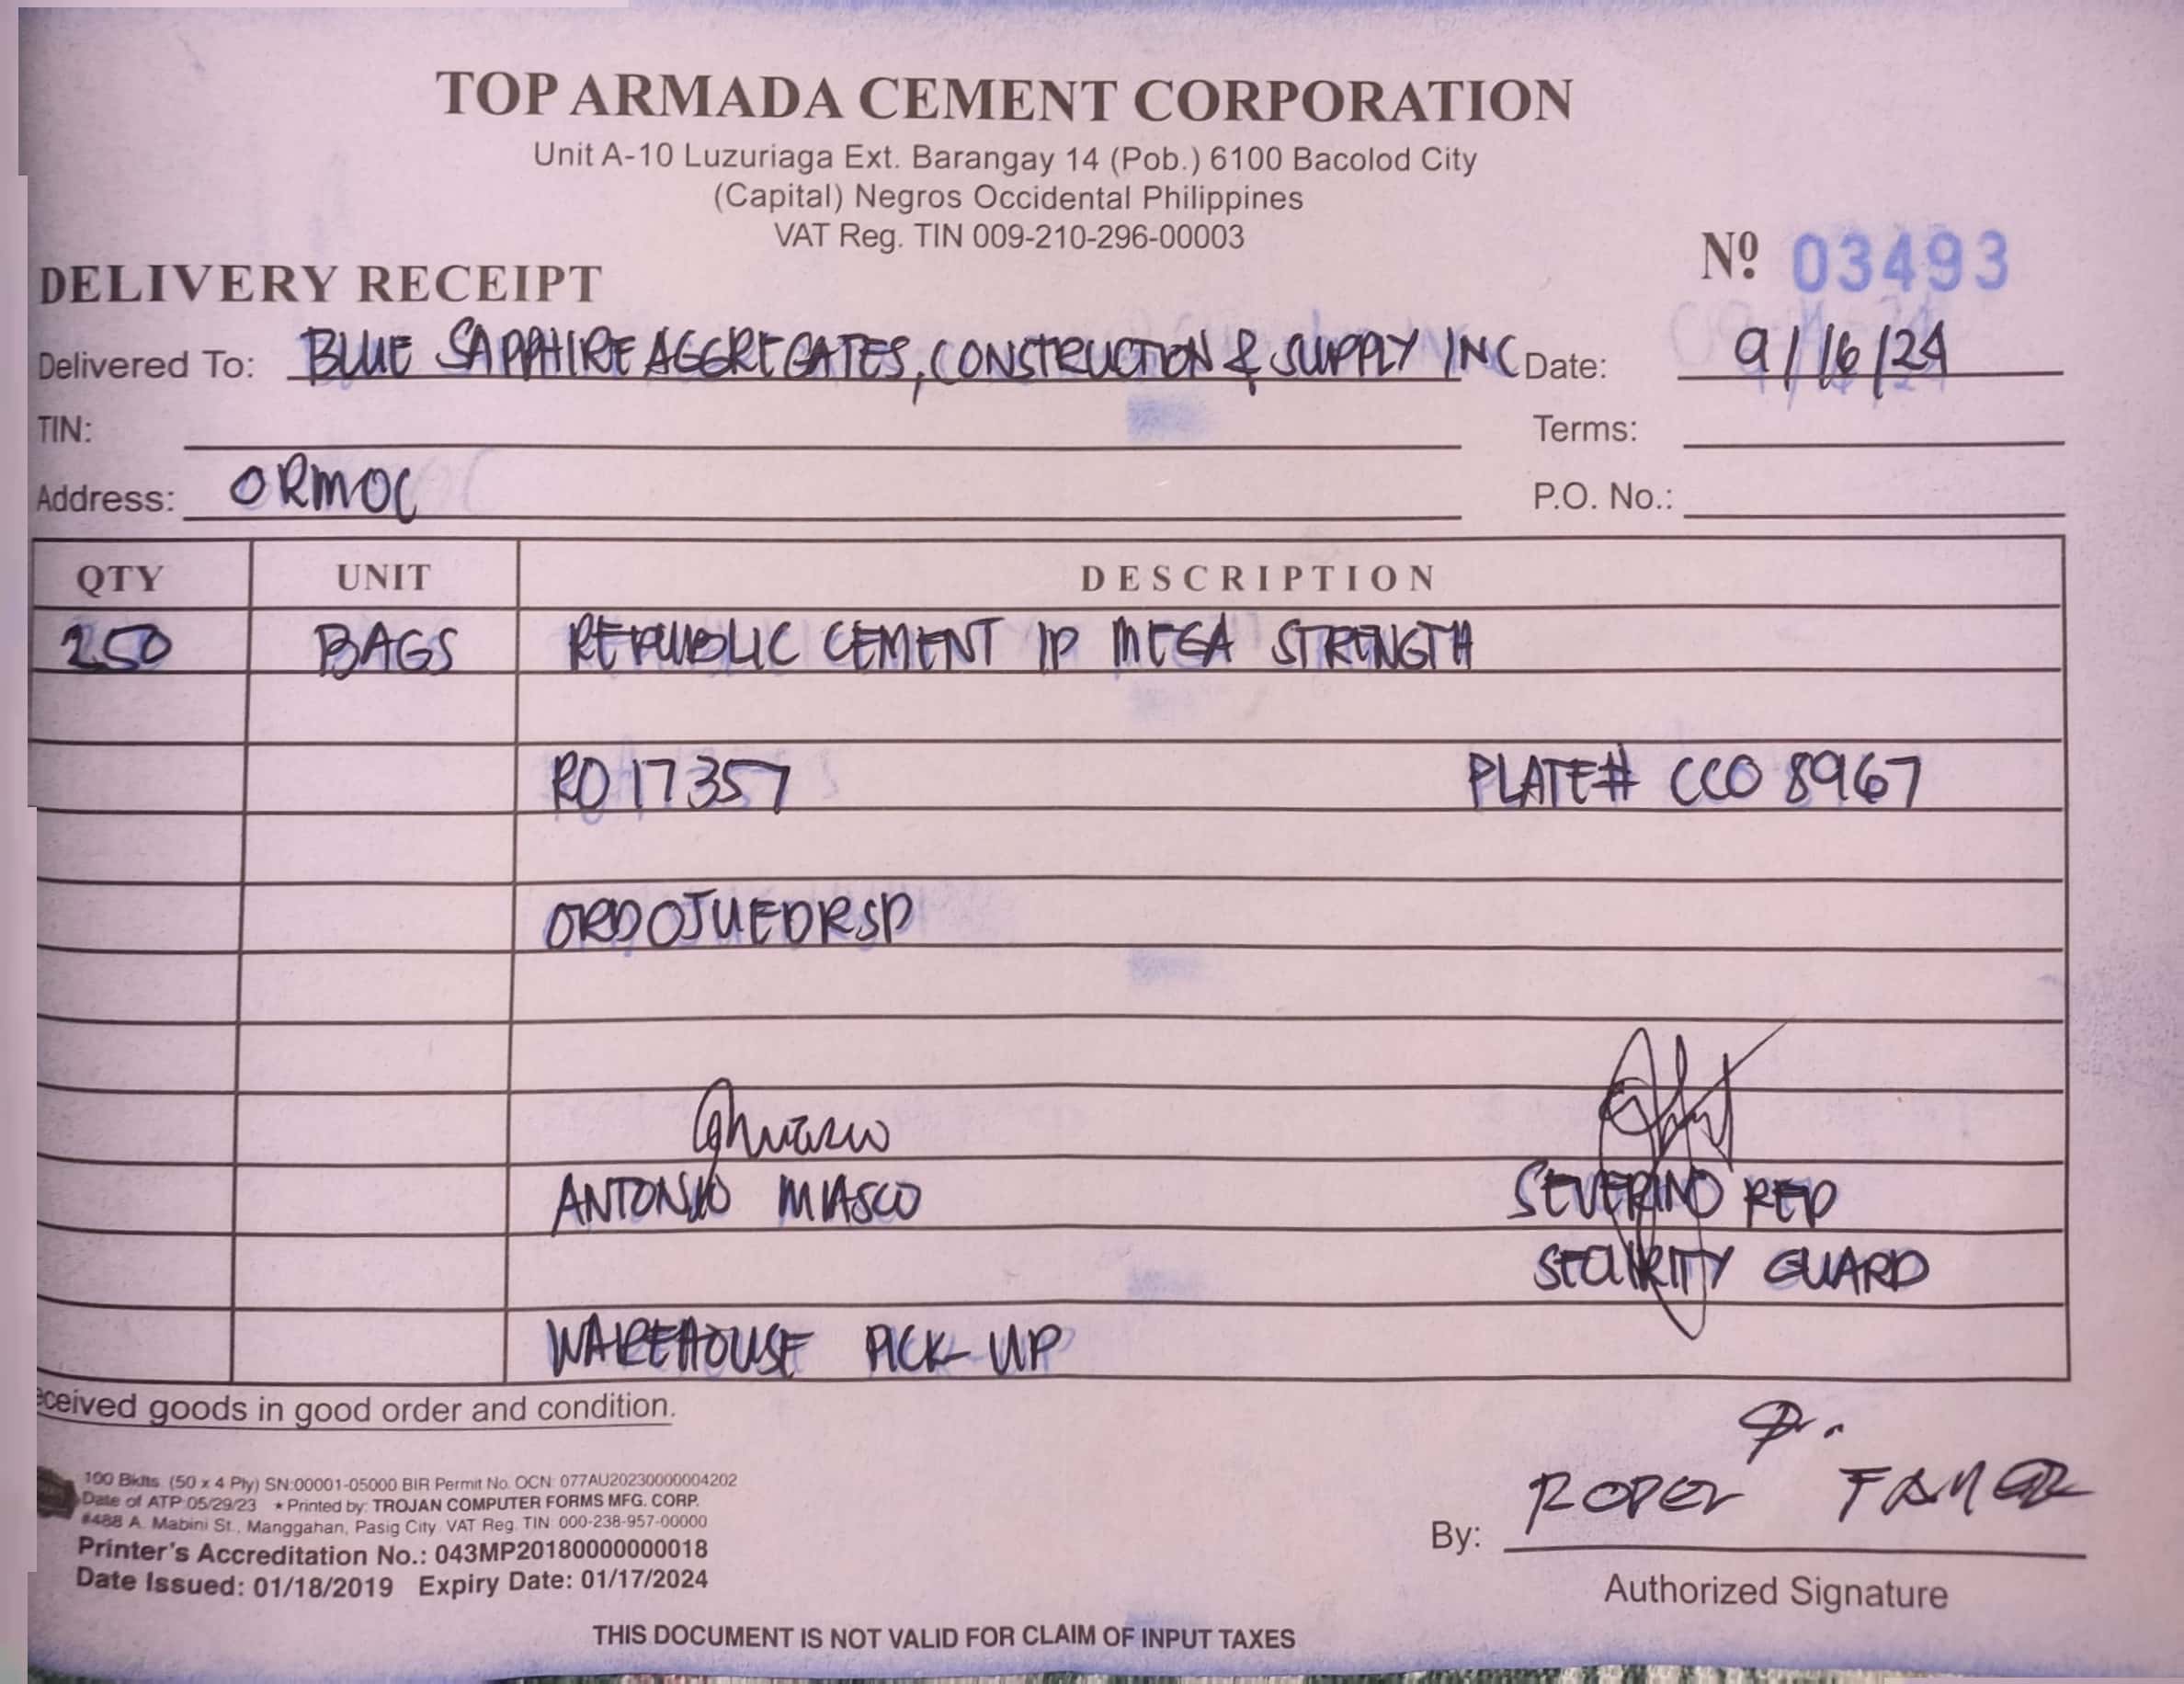 TOP ARMADA CEMENT CORPORATION
Unit A-10 Luzuriaga Ext. Barangay 14 (Pob.) 6100 Bacolod City
(Capital) Negros Occidental Philippines
VAT Reg. TIN 009-210-296-00003
Nº 03493
DELIVERY RECEIPT
Delivered To: BLUE SAPPHIRE AGGREGATES, CONSTRUCTION & SUPPLY INC Date: 9/16/24
TIN: Terms:
Address: ORMOC P.O. No.:
QTY UNIT DESCRIPTION
250 BAGS REPUBLIC CEMENT 1P MEGA STRENGTH
RO 17357 PLATE# CCO 8967
ORDOJUEDRSP
ANTONIO MIASCO SEVERINO RED
SECURITY GUARD
WAREHOUSE PICK-UP
ceived goods in good order and condition.
100 Bklts. (50 x 4 Ply) SN:00001-05000 BIR Permit No. OCN: 077AU20230000004202
Date of ATP:05/29/23 * Printed by: TROJAN COMPUTER FORMS MFG. CORP.
#488 A. Mabini St., Manggahan, Pasig City VAT Reg. TIN: 000-238-957-00000
Printer's Accreditation No.: 043MP20180000000018
Date Issued: 01/18/2019 Expiry Date: 01/17/2024
By:
Authorized Signature
THIS DOCUMENT IS NOT VALID FOR CLAIM OF INPUT TAXES